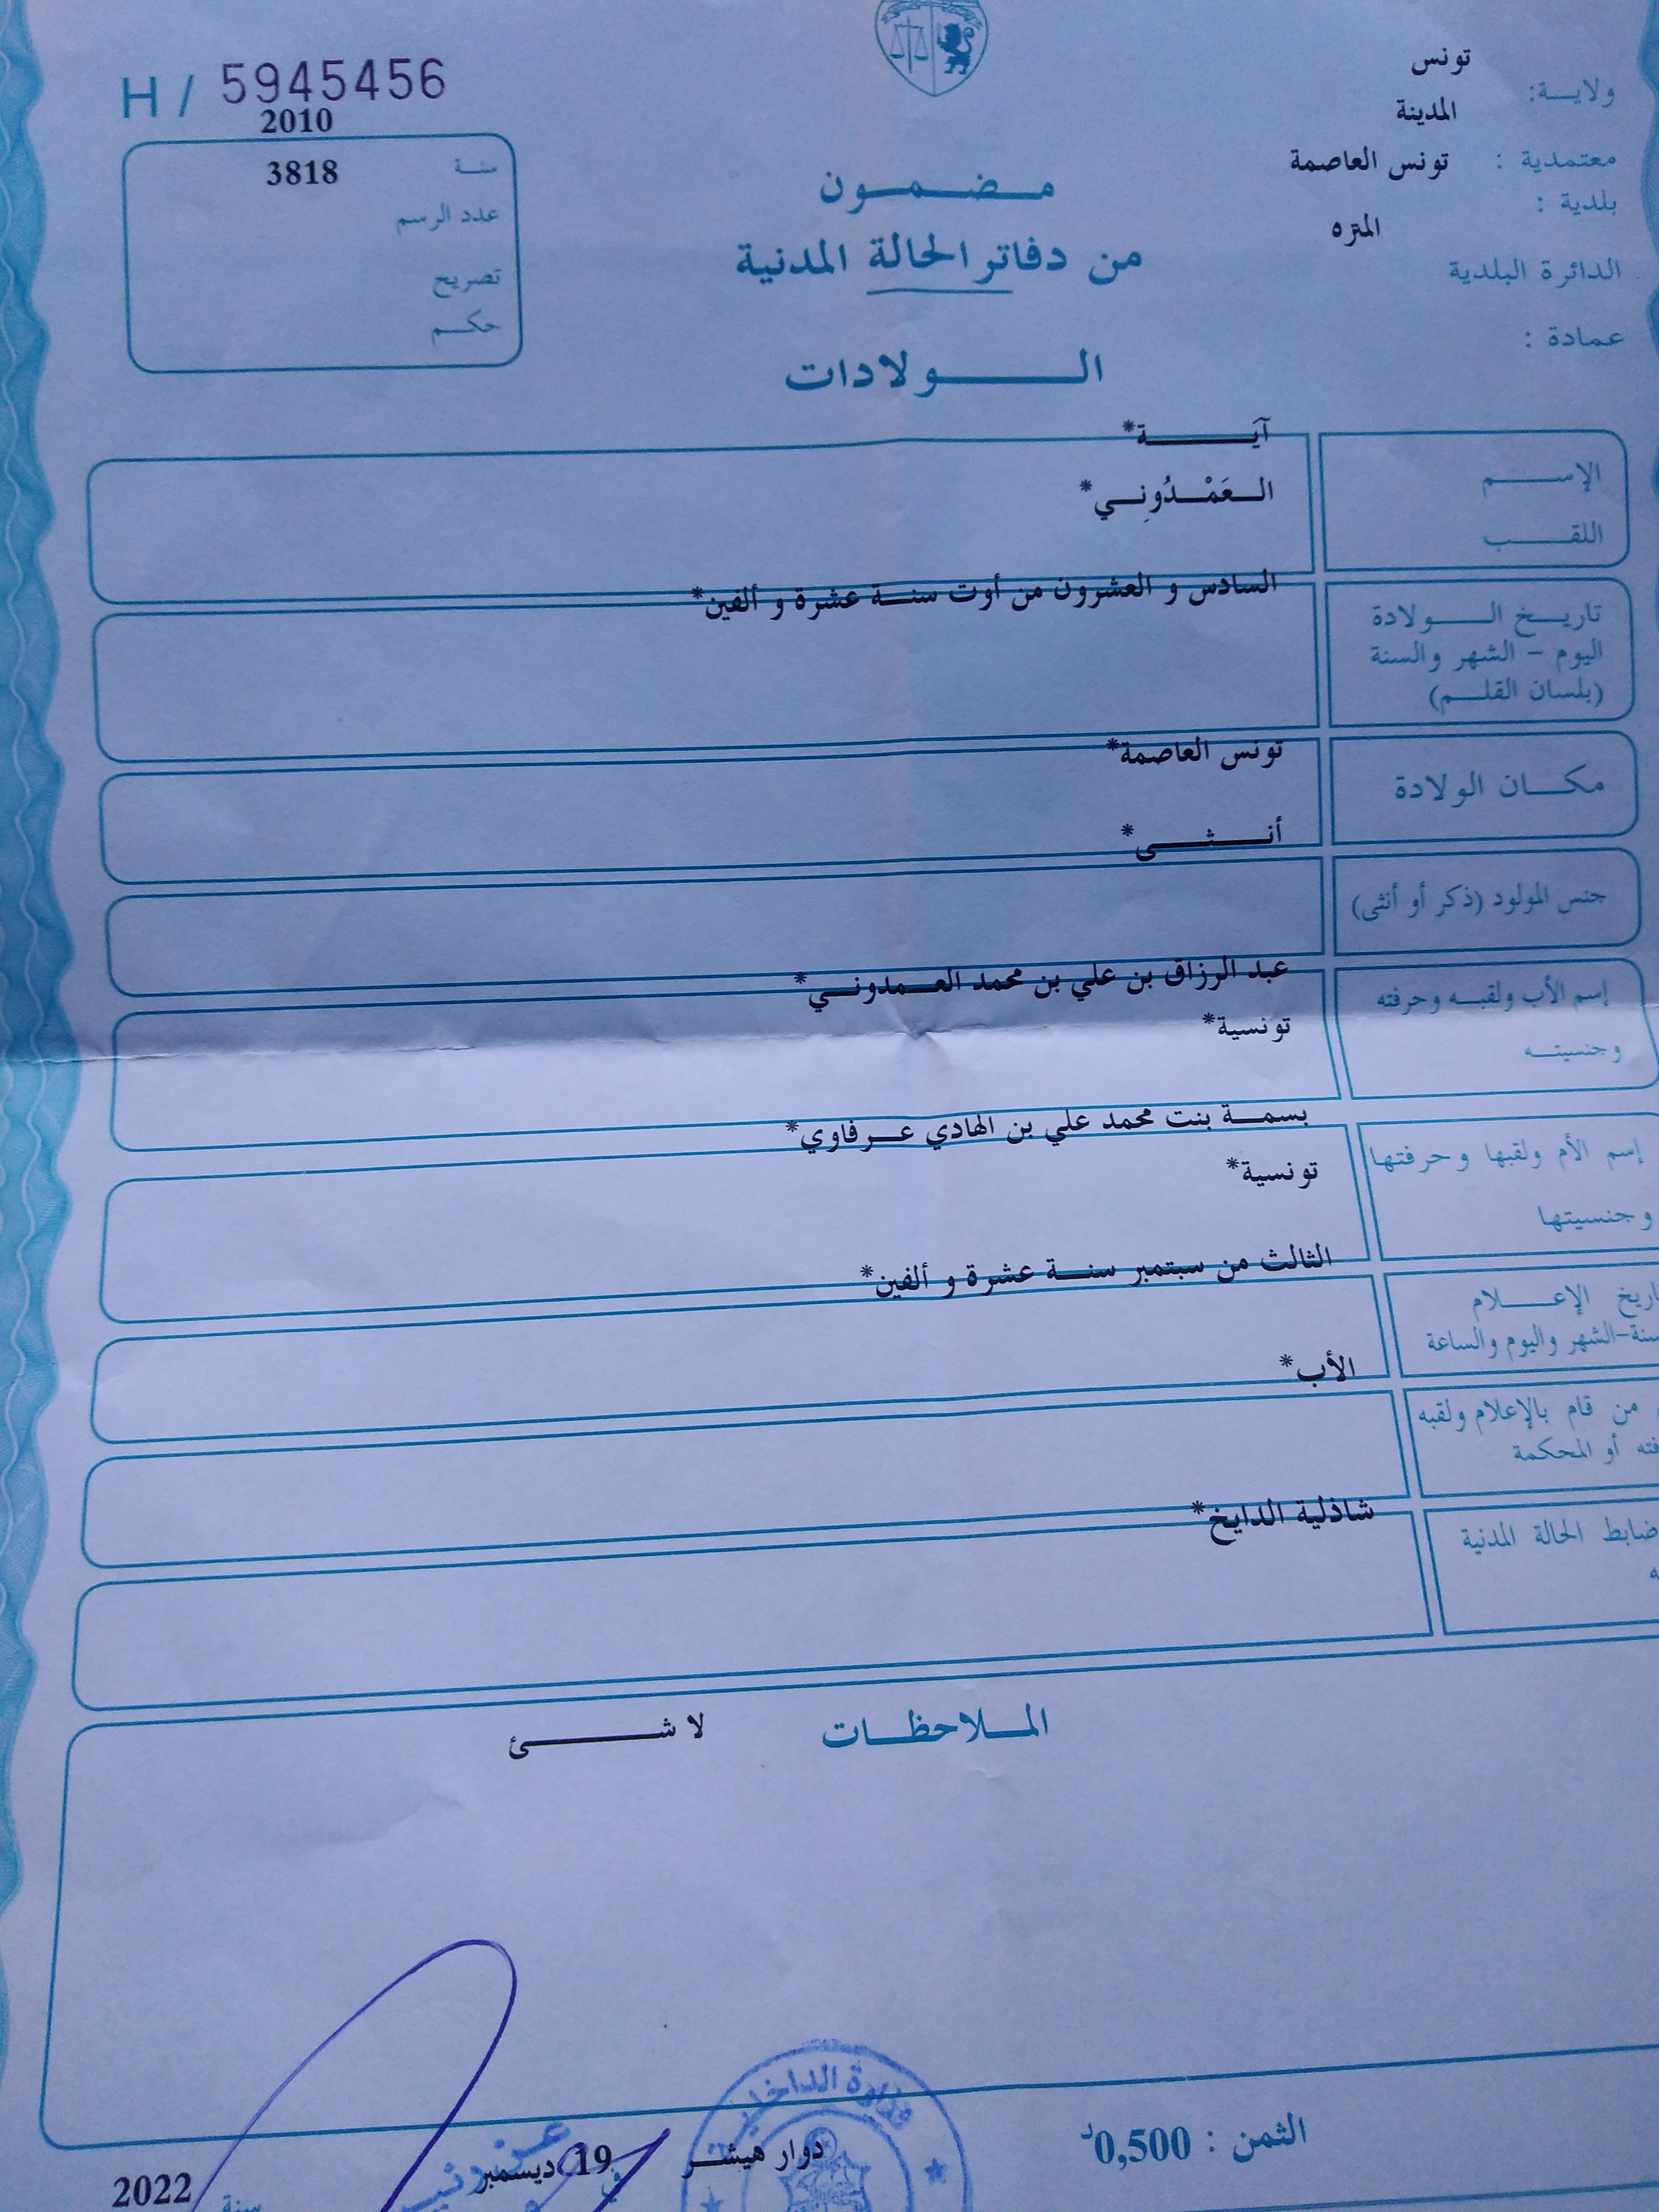 H / 5945456
2010
سنة 3818
عدد الرسم
تصريح
حكم
تونس
ولاية:
المدينة
معتمدية : تونس العاصمة
بلدية :
المنزه
الدائرة البلدية
عمادة :
مضمون
من دفاتر الحالة المدنية
الولادات
آية*
الإسم
العَمْدُونِي*
اللقب
السادس و العشرون من أوت سنة عشرة و ألفين*
تاريخ الولادة
اليوم - الشهر والسنة
(بلسان القلم)
تونس العاصمة*
مكان الولادة
أنثى*
جنس المولود (ذكر أو أنثى)
عبد الرزاق بن علي بن محمد العمدوني*
إسم الأب ولقبه وحرفته
تونسية*
وجنسيته
بسمة بنت محمد علي بن الهادي عرفاوي*
إسم الأم ولقبها وحرفتها
تونسية*
وجنسيتها
الثالث من سبتمبر سنة عشرة و ألفين*
الإعلام
الشهر واليوم والساعة
الأب*
من قام بالإعلام ولقبه
أو المحكمة
شاذلية الدايخ*
ضابط الحالة المدنية
الملاحظات لا شئ
وزارة الداخلية
الثمن : 0,500د
دوار هيشر في 19 ديسمبر سنة 2022